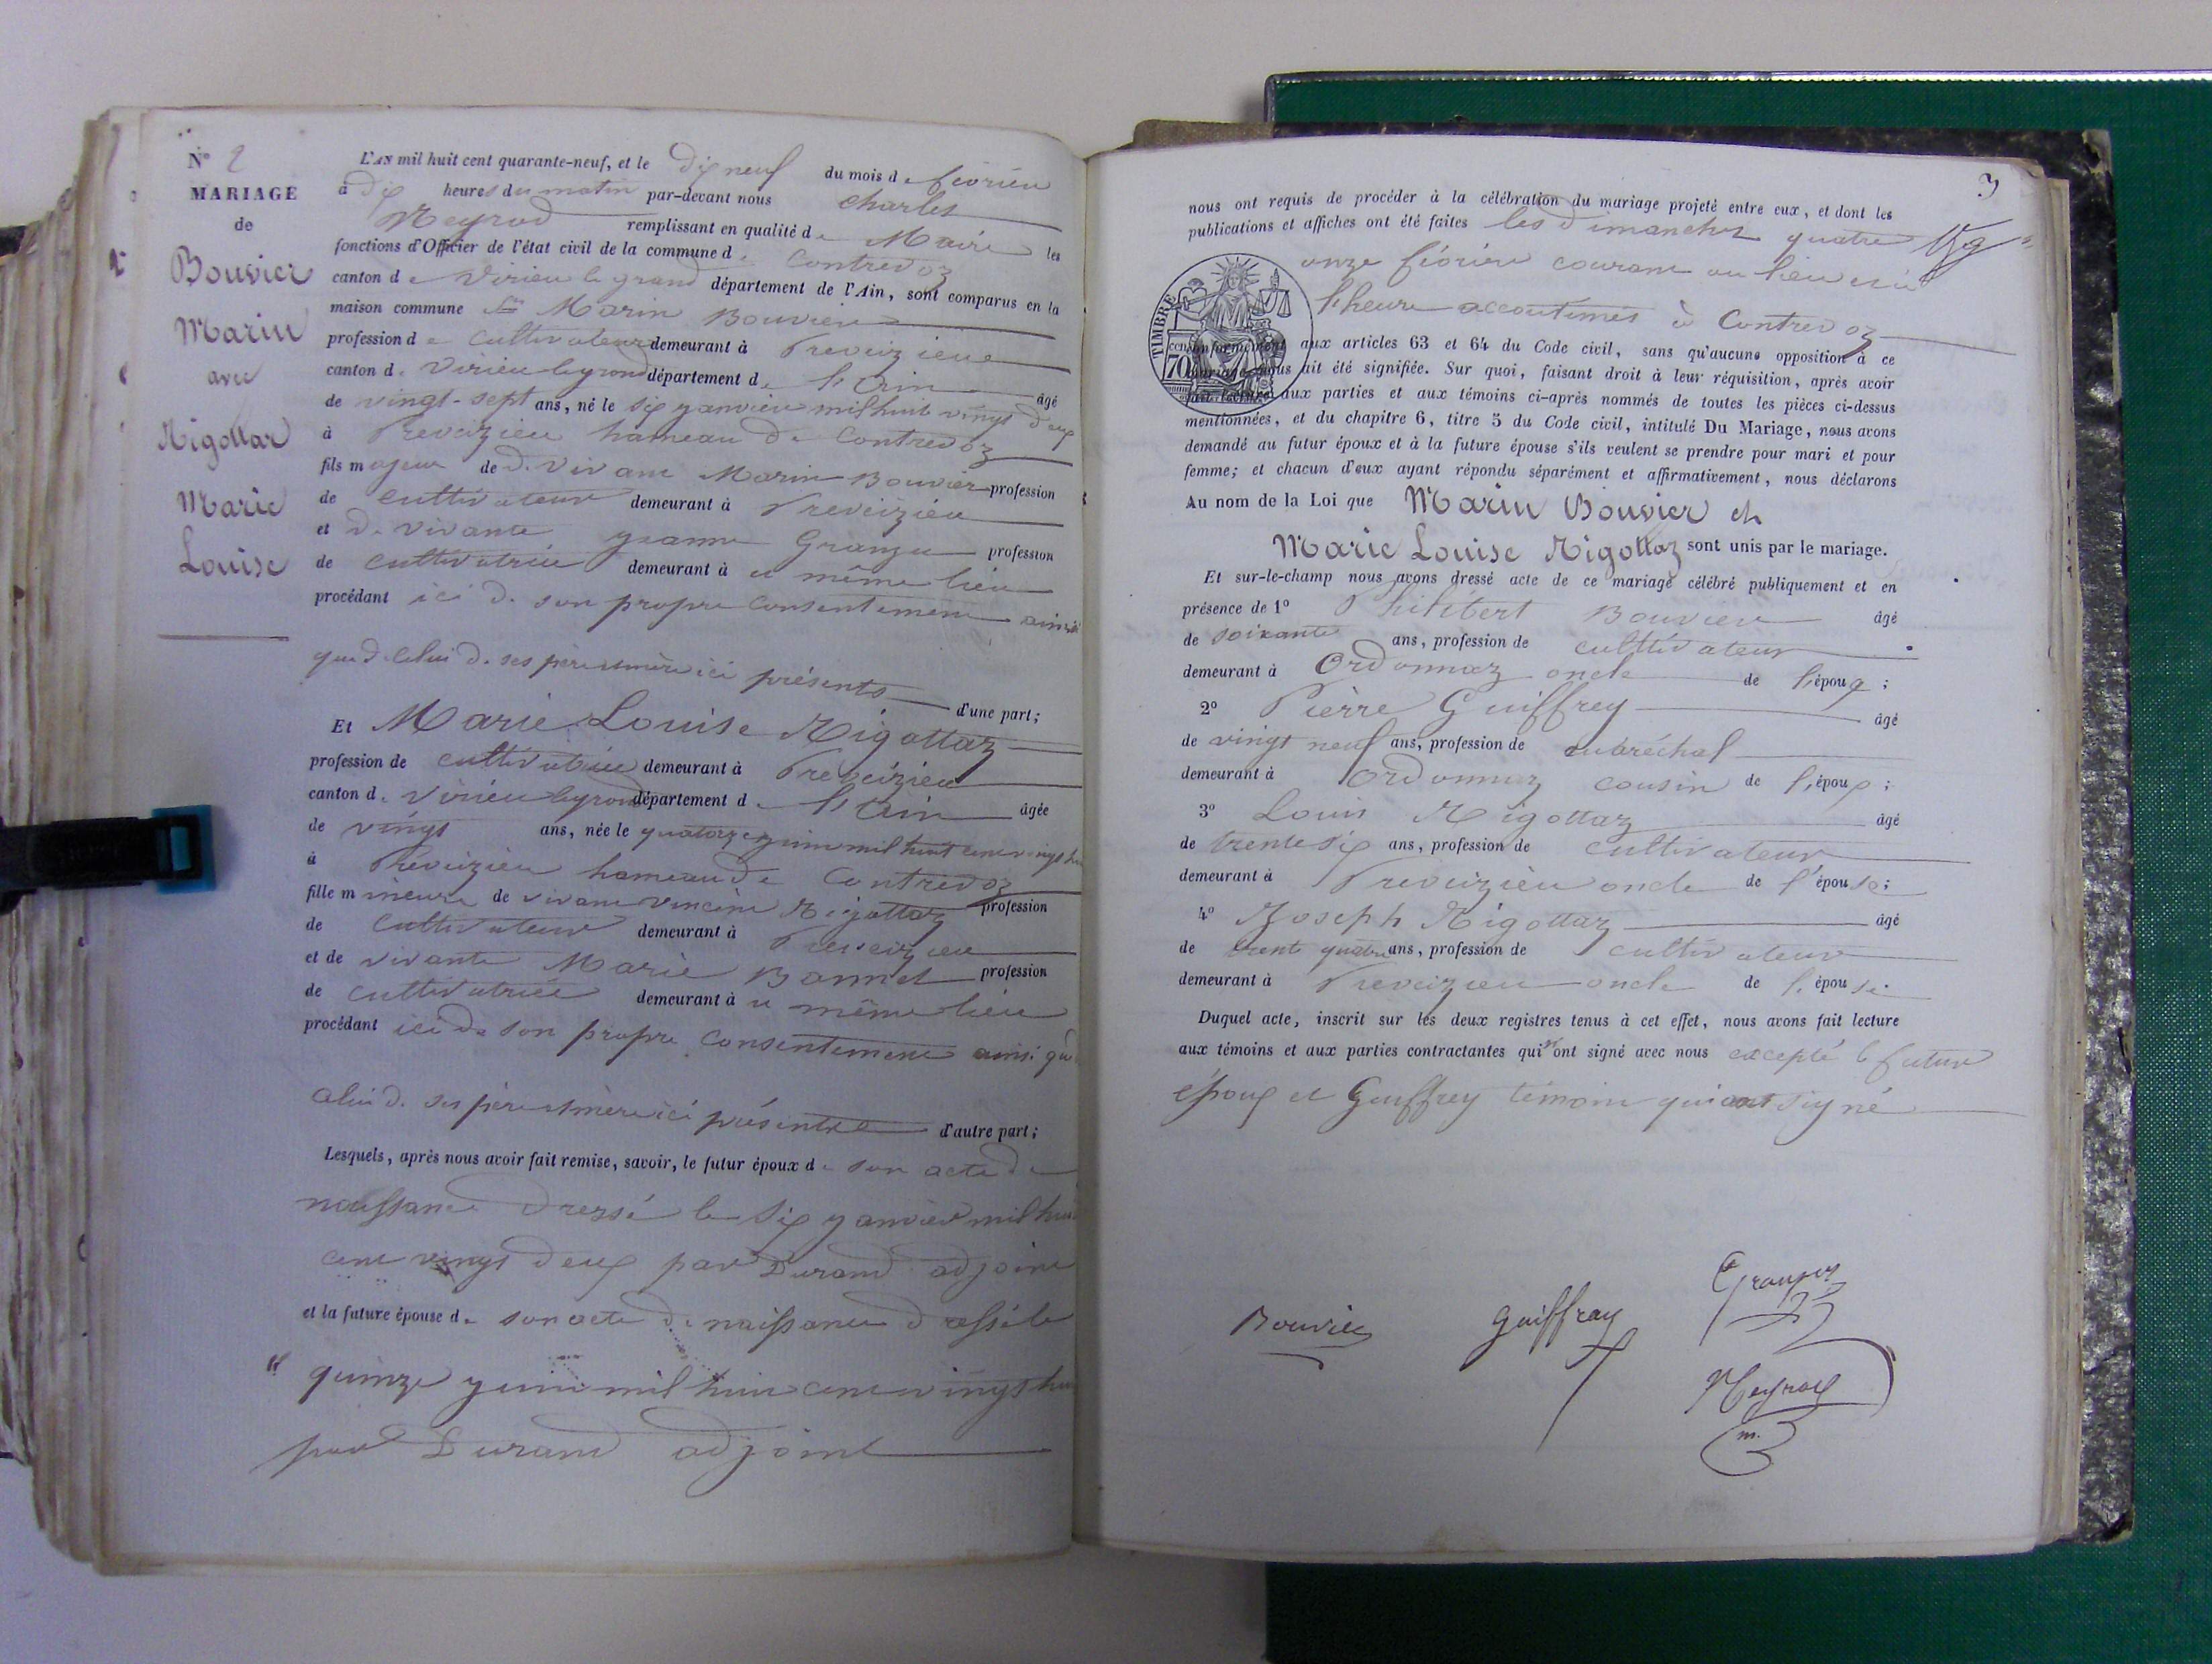 N° 2
MARIAGE
de
Bouvier
Marin
avec
Rigottaz
Marie
Louise
L'AN mil huit cent quarante-neuf, et le dix neuf du mois de février
à dix heures du matin par-devant nous Charles
Meyrod remplissant en qualité de Maire les
fonctions d'Officier de l'état civil de la commune de Contrevoz
canton de Virieu le grand département de l'Ain, sont comparus en la
maison commune Marin Bouvier
profession de cultivateur demeurant à Preveizieu
canton de Virieu le grand département de l'Ain âgé
de vingt-sept ans, né le six janvier mil huit vingt deux
à Preveizieu hameau de Contrevoz
fils majeur de d. vivant Marin Bouvier profession
de cultivateur demeurant à Preveizieu
et de vivante Jeanne Granger profession
de cultivatrice demeurant à u même lieu
procédant ici de son propre consentement ainsi
que de celui de ses père et mère ici présents d'une part;
Et Marie Louise Rigottaz
profession de cultivatrice demeurant à Preveizieu
canton de Virieu le grand département de l'Ain âgée
de vingt ans, née le quatorze juin mil huit cent vingt hu
à Préveizieu hameau de Contrevoz
fille mineure de vivant Rigottaz profession
de cultivateur demeurant à Preveizieu
et de vivante Marie Bonnet profession
de cultivatrice demeurant à u même lieu
procédant ici de son propre consentement ainsi que
celui de ses père et mère ici présents d'autre part;
Lesquels, après nous avoir fait remise, savoir, le futur époux de son acte de
naissance dressé le six janvier mil hui
cent vingt deux par Durand adjoint
et la future épouse de son acte de naissance dressé le
quinze juin mil huit cent vingt hu
par Durand adjoint
3
nous ont requis de procéder à la célébration du mariage projeté entre eux, et dont les
publications et affiches ont été faites les dimanches quatre
onze février courant au lieu et à
l'heure accoutumés à Contrevoz
TIMBRE
70 cen
conformément aux articles 63 et 64 du Code civil, sans qu'aucune opposition à ce
mariage nous ait été signifiée. Sur quoi, faisant droit à leur réquisition, après avoir
fait lecture aux parties et aux témoins ci-après nommés de toutes les pièces ci-dessus
mentionnées, et du chapitre 6, titre 5 du Code civil, intitulé Du Mariage, nous avons
demandé au futur époux et à la future épouse s'ils veulent se prendre pour mari et pour
femme; et chacun d'eux ayant répondu séparément et affirmativement, nous déclarons
Au nom de la Loi que Marin Bouvier et
Marie Louise Rigottaz sont unis par le mariage.
Et sur-le-champ nous avons dressé acte de ce mariage célébré publiquement et en
présence de 1° Philibert Bouvier âgé
de soixante ans, profession de culttivateur
demeurant à Ordonnaz oncle de l'époux ;
2° Pierre Guiffrey âgé
de vingt neuf ans, profession de maréchal
demeurant à Ordonnaz cousin de l'époux ;
3° Louis Rigottaz âgé
de trente six ans, profession de cultivateur
demeurant à Preveizieu oncle de l'épouse;
4° Joseph Rigottaz âgé
de trente quatre ans, profession de cultivateur
demeurant à Preveizieu oncle de l'épouse
Duquel acte, inscrit sur les deux registres tenus à cet effet, nous avons fait lecture
aux témoins et aux parties contractantes qui n'ont signé avec nous excepté le futur
époux et Guiffrey témoin qui ont signé
Bouvier
Guiffray
Granger
Meyrod
m.